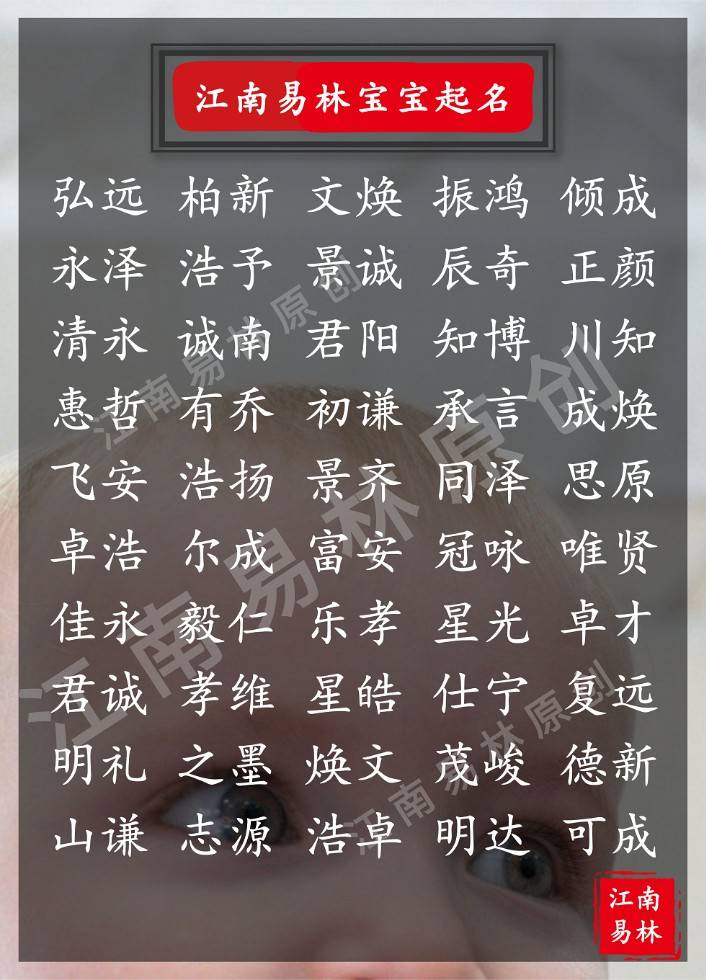 江南易林宝宝起名
弘远 柏新 文焕 振鸿 倾成
永泽 浩予 景诚 辰奇 正颜
清永 诚南 君阳 知博 川知
惠哲 有乔 初谦 承言 成焕
飞安 浩扬 景齐 同泽 思原
卓浩 尔成 富安 冠咏 唯贤
佳永 毅仁 乐孝 星光 卓才
君诚 孝维 星皓 仕宁 复远
明礼 之墨 焕文 茂峻 德新
山谦 志源 浩卓 明达 可成
江南易林原创
江南易林原创
江南易林原创
江南
易林